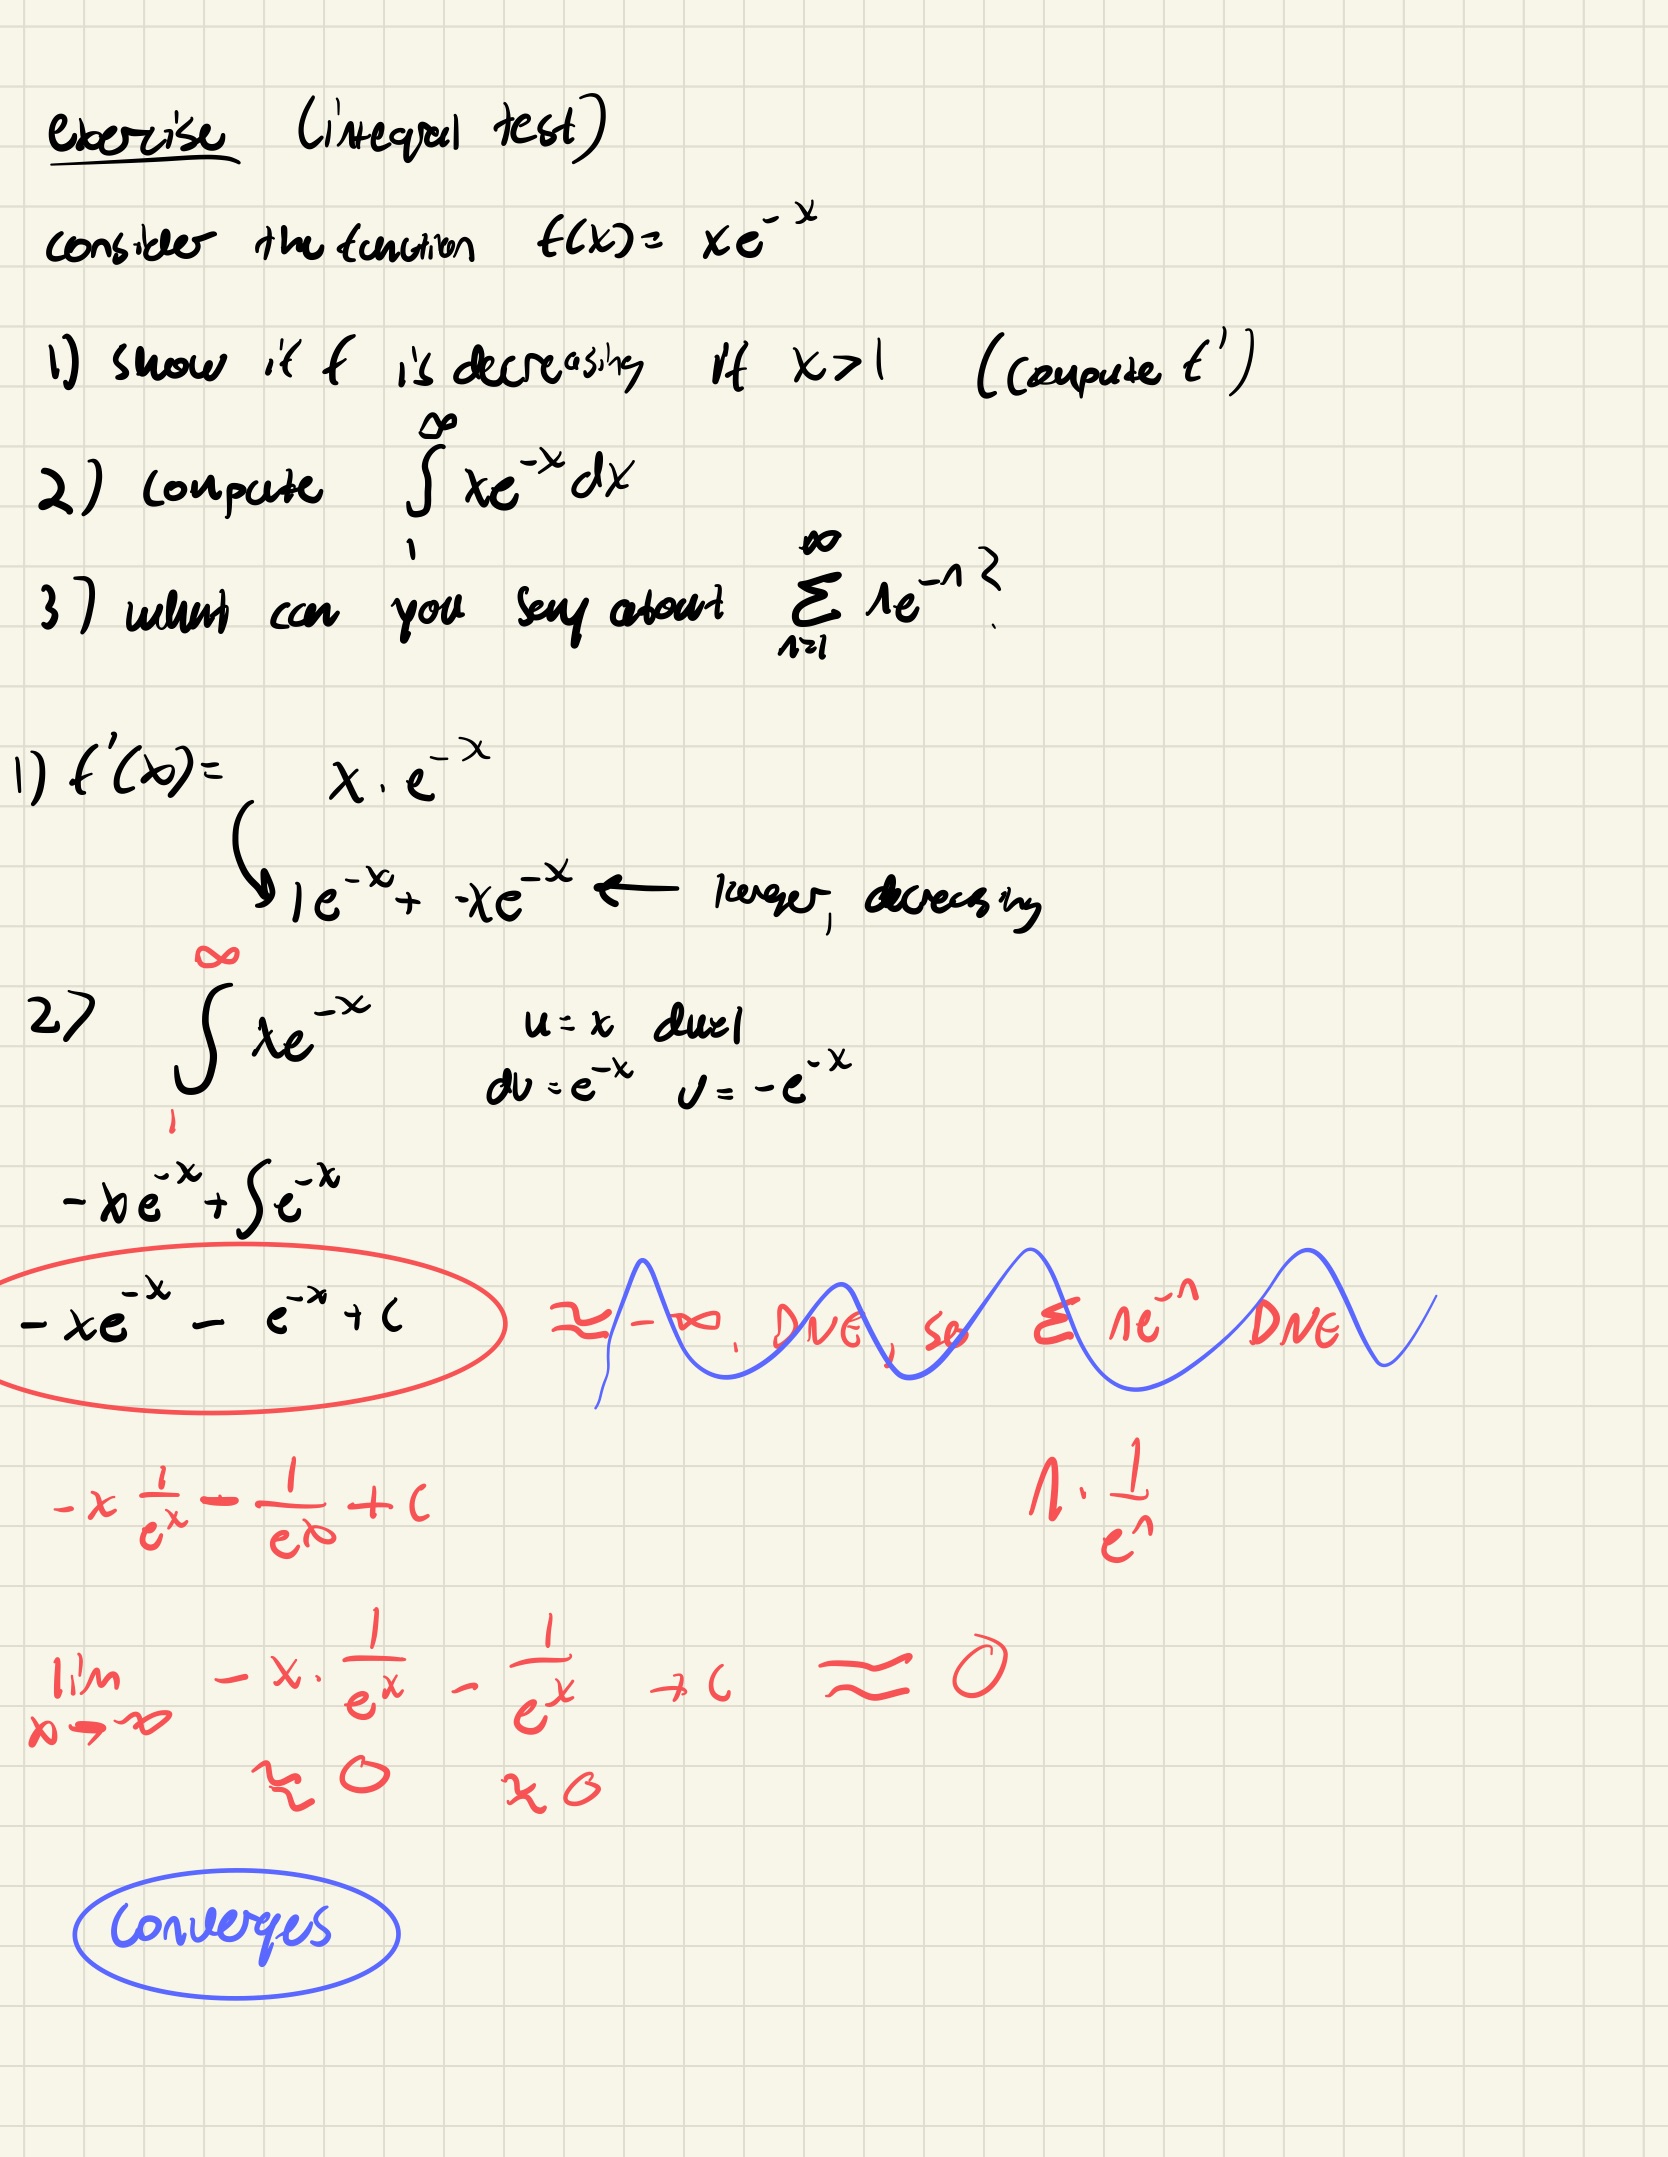 exercise (integral test)
consider the function f(x) = xe^{-x}
1) show if f is decreasing if x > 1 (compute f')
2) compute ∫_1^∞ xe^{-x} dx
3) what can you say about Σ_{n=1}^∞ ne^{-n}?
1) f'(x) = x · e^{-x}
1e^{-x} + -xe^{-x} ← larger, decreasing
2) ∫_1^∞ xe^{-x} u = x du = 1
dv = e^{-x} v = -e^{-x}
-xe^{-x} + ∫e^{-x}
-xe^{-x} - e^{-x} + C ≈ -∞, DNE, so Σ ne^{-n} DNE
-x 1/e^x - 1/e^x + C n · 1/e^n
lim x→∞ -x · 1/e^x - 1/e^x + C ≈ 0
≈ 0 ≈ 0
Converges